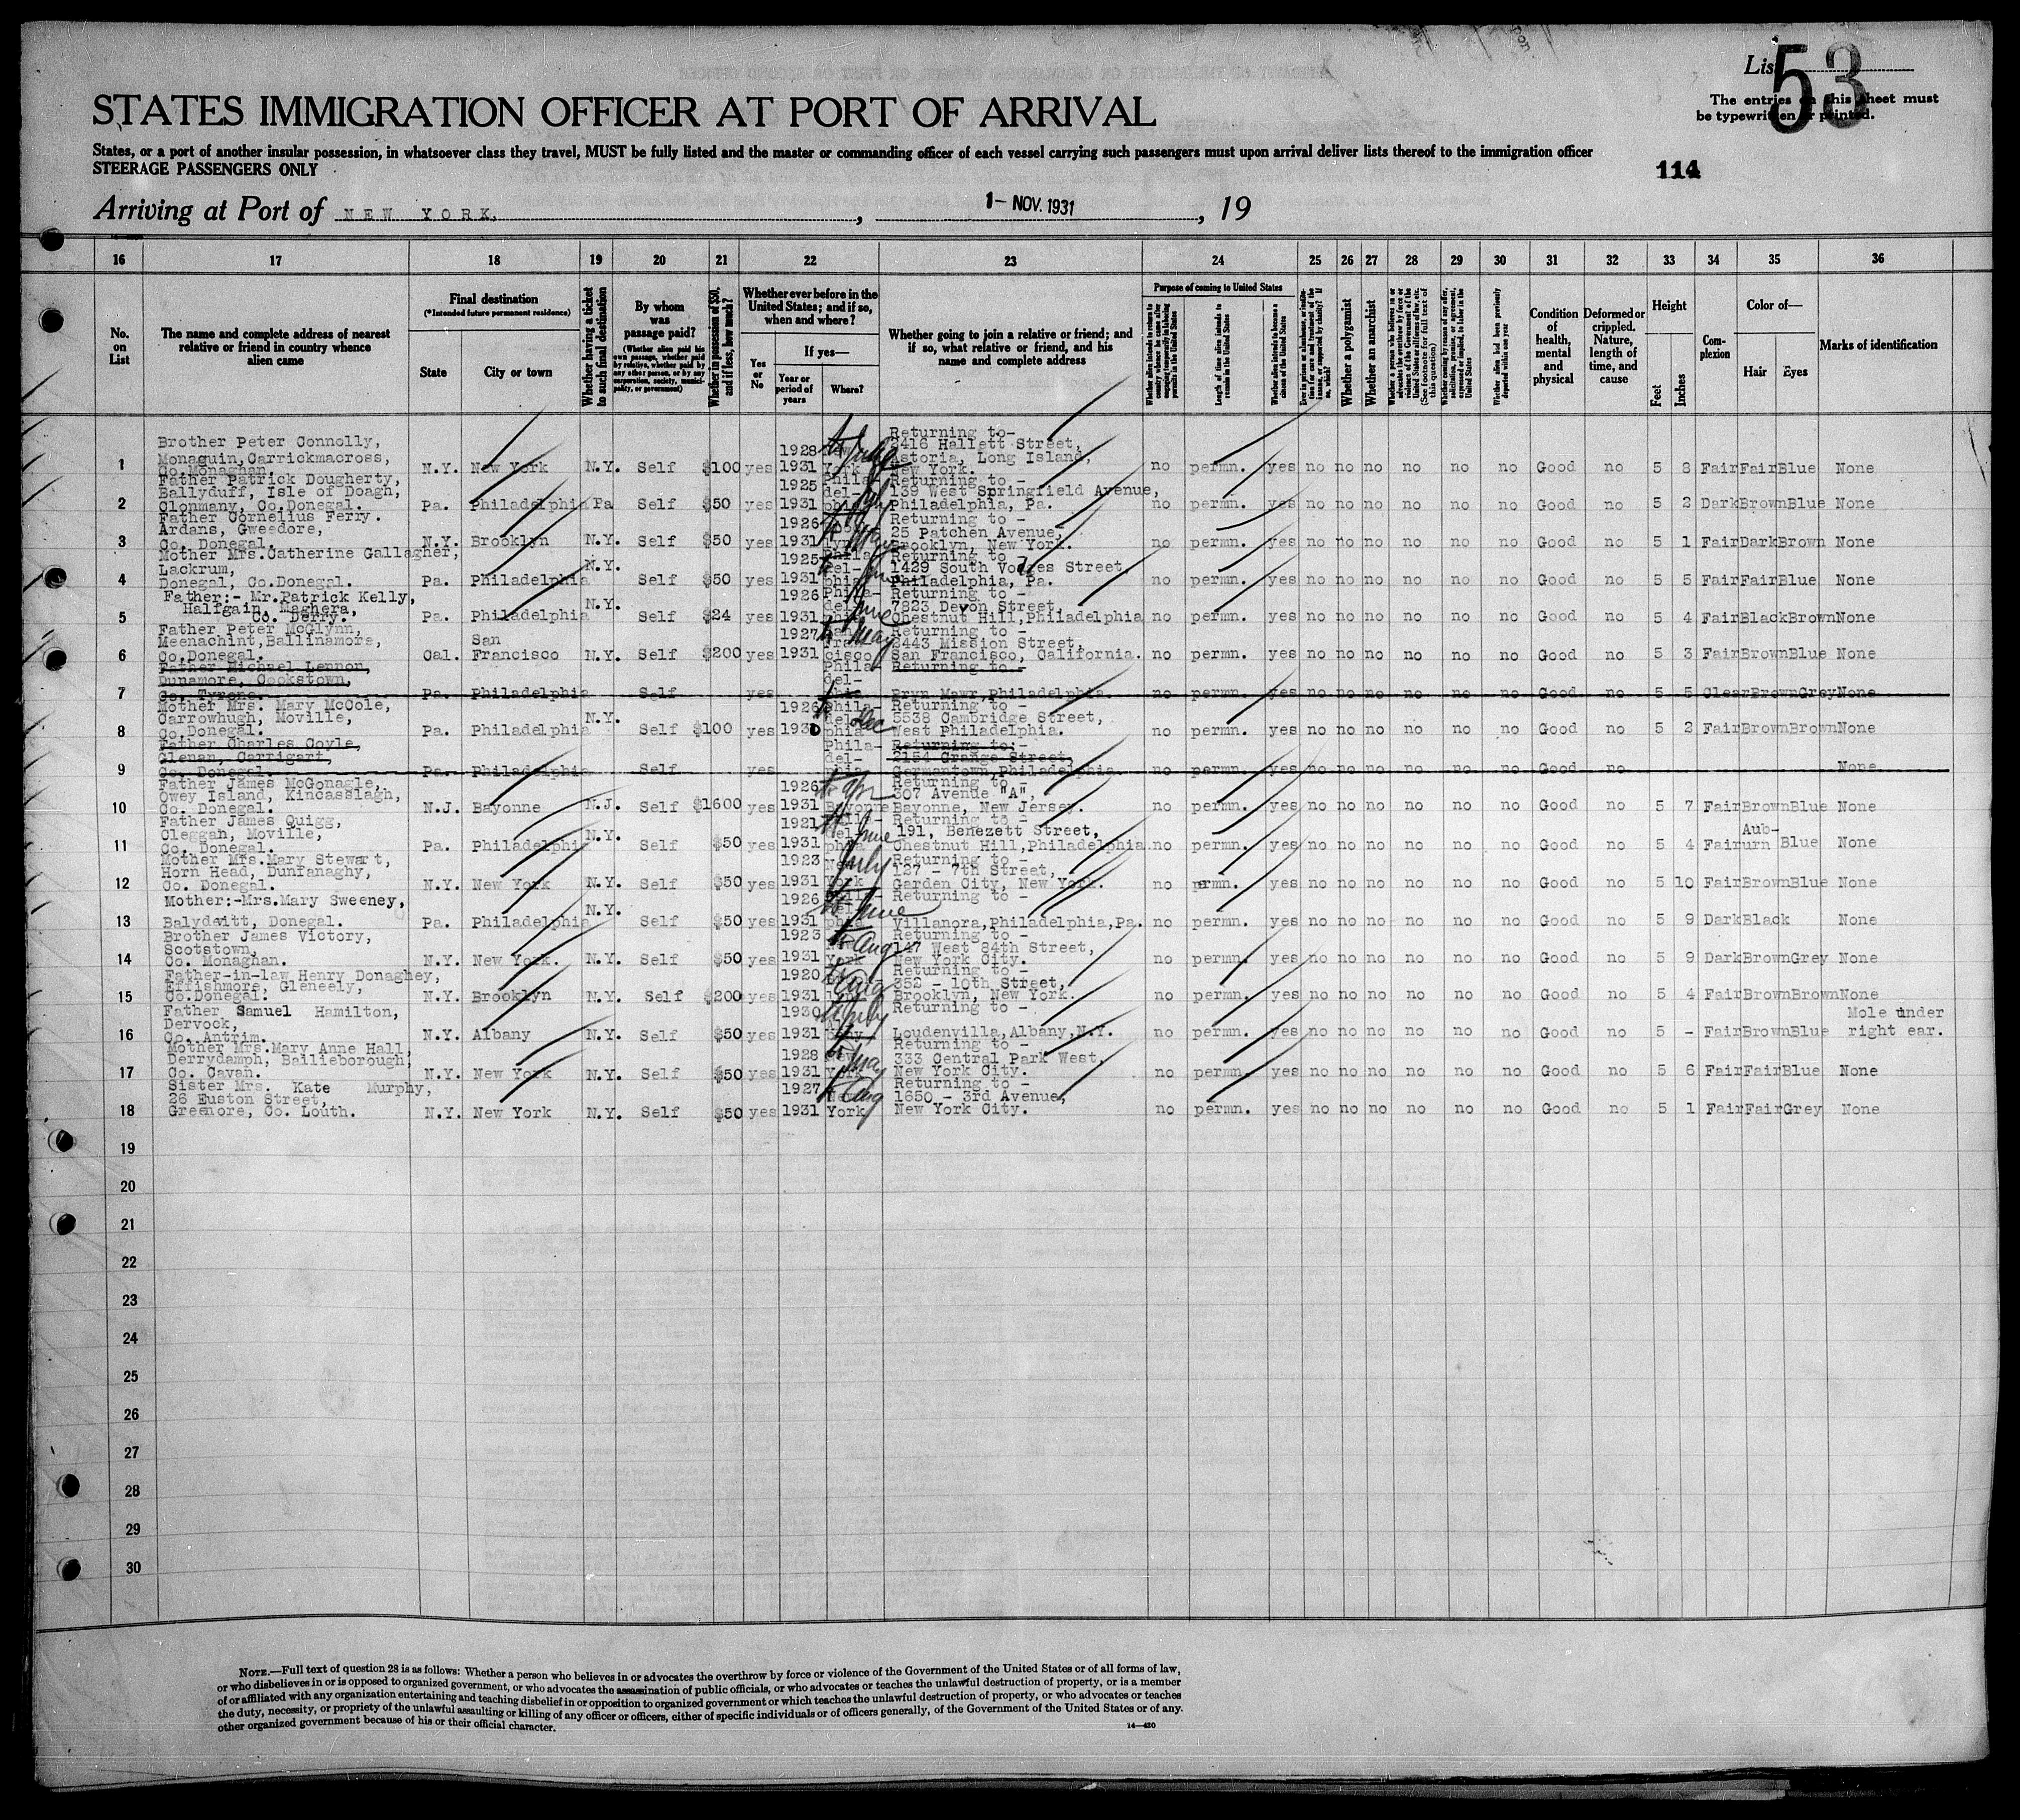 List 53
STATES IMMIGRATION OFFICER AT PORT OF ARRIVAL
The entries on this sheet must
be typewritten or printed.
States, or a port of another insular possession, in whatsoever class they travel, MUST be fully listed and the master or commanding officer of each vessel carrying such passengers must upon arrival deliver lists thereof to the immigration officer
STEERAGE PASSENGERS ONLY
114
Arriving at Port of NEW YORK, 1- NOV. 1931, 19
16 17 18 19 20 21 22 23 24 25 26 27 28 29 30 31 32 33 34 35 36
No. on List
The name and complete address of nearest relative or friend in country whence alien came
Final destination (*Intended future permanent residence)
State
City or town
Whether having a ticket to such final destination
By whom was passage paid?
(Whether alien paid his own passage, whether paid by relative, whether paid by any other person, or by any corporation, society, municipality, or government)
Whether in possession of $50, and if less, how much?
Whether ever before in the United States; and if so, when and where?
Yes or No
If yes—
Year or period of years
Where?
Whether going to join a relative or friend; and if so, what relative or friend, and his name and complete address
Purpose of coming to United States
Length of time alien intends to remain in the United States
Whether alien intends to become a citizen of the United States
Whether a polygamist
Whether an anarchist
Whether alien had been previously deported within one year
Condition of health, mental and physical
Deformed or crippled. Nature, length of time, and cause
Height
Feet
Inches
Complexion
Color of—
Hair
Eyes
Marks of identification
1 Brother Peter Connolly, Monaguin,Carrickmacross, Co.Monaghan. N.Y. New York N.Y. Self $100 yes 1928 1931 New York Returning to- 2416 Hallett Street, Astoria, Long Island, New York. no permn. yes no no no no no no Good no 5 8 Fair Fair Blue None
2 Father Patrick Dougherty, Ballyduff, Isle of Doagh, Clonmany, Co.Donegal. Pa. Philadelphia Pa Self $50 yes 1925 1931 Philadelphia Returning to - 139 West Springfield Avenue, Philadelphia, Pa. no permn. yes no no no no no no Good no 5 2 Dark Brown Blue None
3 Father Cornelius Ferry. Ardans, Gweedore, Co. Donegal. N.Y. Brooklyn N.Y. Self $50 yes 1926 1931 Returning to - 25 Patchen Avenue, Brooklyn, New York. no permn. yes no no no no no no Good no 5 1 Fair Dark Brown None
4 Mother Mrs.Catherine Gallagher, Lackrum, Donegal, Co.Donegal. Pa. Philadelphia N.Y. Self $50 yes 1925 1931 Philadelphia June Returning to - 1429 South Street, Philadelphia, Pa. no permn. yes no no no no no no Good no 5 5 Fair Fair Blue None
5 Father:- Mr.Patrick Kelly, Halfgain, Maghera, Co. Derry. Pa. Philadelphia N.Y. Self $24 yes 1926 1931 Philadelphia June Returning to - 7823 Devon Street, Chestnut Hill,Philadelphia no permn. yes no no no no no no Good no 5 4 Fair Black Brown None
6 Father Peter McGlynn, Meenachint,Ballinamore, Co.Donegal. Cal. San Francisco N.Y. Self $200 yes 1927 1931 San Francisco May Returning to - 2443 Mission Street, San Francisco, California. no permn. yes no no no no no no Good no 5 3 Fair Brown Blue None
7 Father Michael Lennon, Dunamore, Cookstown, Co. Tyrone. Pa. Philadelphia Self yes Philadelphia Returning to - Bryn Mawr,Philadelphia. no permn. yes no no no no no no Good no 5 5 Clear Brown Grey None
8 Mother Mrs. Mary McCole, Carrowhugh, Moville, Co.Donegal. Pa. Philadelphia N.Y. Self $100 yes 1926 1930 Philadelphia Dec Returning to - 5538 Cambridge Street, West Philadelphia. no permn. yes no no no no no no Good no 5 2 Fair Brown Brown None
9 Father Charles Coyle, Glenan, Carrigart, Co. Donegal. Pa. Philadelphia Self yes Philadelphia Returning to:- 2154 Grange Street, Germantown,Philadelphia. no permn. yes no no no no no no Good no None
10 Father James McGonagle, Owey Island, Kincasslagh, Co. Donegal. N.J. Bayonne N.J. Self $1600 yes 1926 1931 Bayonne Apr Returning to 307 Avenue "A", Bayonne, New Jersey. no permn. yes no no no no no no Good no 5 7 Fair Brown Blue None
11 Father James Quigg, Cleggan, Moville, Co. Donegal. Pa. Philadelphia N.Y. Self $50 yes 1921 1931 Philadelphia June Returning to - 191, Benezett Street, Chestnut Hill,Philadelphia. no permn. yes no no no no no no Good no 5 4 Fair Auburn Blue None
12 Mother Mrs.Mary Stewart, Horn Head, Dunfanaghy, Co. Donegal. N.Y. New York N.Y. Self $50 yes 1923 1931 New York July Returning to - 127 - 7th Street, Garden City, New York. no ermn. yes no no no no no no Good no 5 10 Fair Brown Blue None
13 Mother:-Mrs.Mary Sweeney, Balydevitt, Donegal. Pa. Philadelphia N.Y. Self $50 yes 1926 1931 Philadelphia June Returning to - Villanora,Philadelphia,Pa. no permn. yes no no no no no no Good no 5 9 Dark Black None
14 Brother James Victory, Scotstown, Co. Monaghan. N.Y. New York. N.Y. Self $50 yes 1923 1931 New York Aug Returning to - 147 West 84th Street, New York City. no permn. yes no no no no no no Good no 5 9 Dark Brown Grey None
15 Father-in-law Henry Donaghey, Effishmore, Gleneely, Co.Donegal. N.Y. Brooklyn N.Y. Self $200 yes 1920 1931 Aug Returning to - 352 - 10th Street, Brooklyn, New York. no permn. yes no no no no no no Good no 5 4 Fair Brown Brown None
16 Father Samuel Hamilton, Dervock, Co. Antrim. N.Y. Albany N.Y. Self $50 yes 1930 1931 July Returning to - Loudenville,Albany,N.Y. no permn. yes no no no no no no Good no 5 - Fair Brown Blue Mole under right ear.
17 Mother Mrs.Mary Anne Hall, Derrydamph, Bailieborough, Co. Cavan. N.Y. New York N.Y. Self $50 yes 1928 1931 New York Returning to - 333 Central Park West, New York City. no permn. yes no no no no no no Good no 5 6 Fair Fair Blue None
18 Sister Mrs. Kate Murphy, 26 Euston Street, Greenore, Co. Louth. N.Y. New York N.Y. Self $50 yes 1927 1931 New York Aug Returning to - 1650 - 3rd Avenue, New York City. no permn. yes no no no no no no Good no 5 1 Fair Fair Grey None
19
20
21
22
23
24
25
26
27
28
29
30
NOTE.—Full text of question 28 is as follows: Whether a person who believes in or advocates the overthrow by force or violence of the Government of the United States or of all forms of law,
or who disbelieves in or is opposed to organized government, or who advocates the assassination of public officials, or who advocates or teaches the unlawful destruction of property, or is a member
of or affiliated with any organization entertaining and teaching disbelief in or opposition to organized government or which teaches the unlawful destruction of property, or who advocates or teaches
the duty, necessity, or propriety of the unlawful assaulting or killing of any officer or officers, either of specific individuals or of officers generally, of the Government of the United States or of any.
other organized government because of his or their official character.
14—430